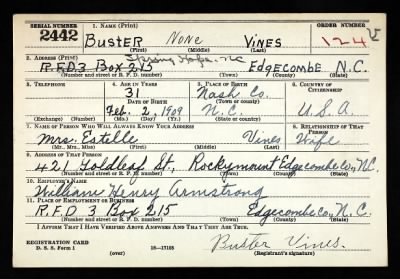 SERIAL NUMBER 1. NAME (Print) ORDER NUMBER
2442 BUSTER None VINES 124
(First) (Middle) (Last)
2. ADDRESS (Print) Spring Hope, NC
R.F.D 3 Box 215 Edgecombe N.C.
(Number and street or R. F. D. number) (Town) (County) (State)
3. TELEPHONE 4. AGE IN YEARS 5. PLACE OF BIRTH 6. COUNTRY OF CITIZENSHIP
31 Nash Co.
DATE OF BIRTH (Town or county)
Feb. 2, 1909 N.C. U.S.A.
(Exchange) (Number) (Mo.) (Day) (Yr.) (State or country)
7. NAME OF PERSON WHO WILL ALWAYS KNOW YOUR ADDRESS 8. RELATIONSHIP OF THAT PERSON
Mrs. Estelle Vines Wife
(Mr., Mrs., Miss) (First) (Middle) (Last)
9. ADDRESS OF THAT PERSON
421 Goldleaf St., Rockymount Edgecombe Co., N.C.
(Number and street or R. F. D. number) (Town) (County) (State)
10. EMPLOYER'S NAME
William Henry Armstrong
11. PLACE OF EMPLOYMENT OR BUSINESS
R.F.D 3 Box 215 Edgecombe Co., N.C.
(Number and street or R. F. D. number) (Town) (County) (State)
I AFFIRM THAT I HAVE VERIFIED ABOVE ANSWERS AND THAT THEY ARE TRUE.
REGISTRATION CARD
D. S. S. Form 1 16—17105 Buster Vines.
(over) (Registrant's signature)